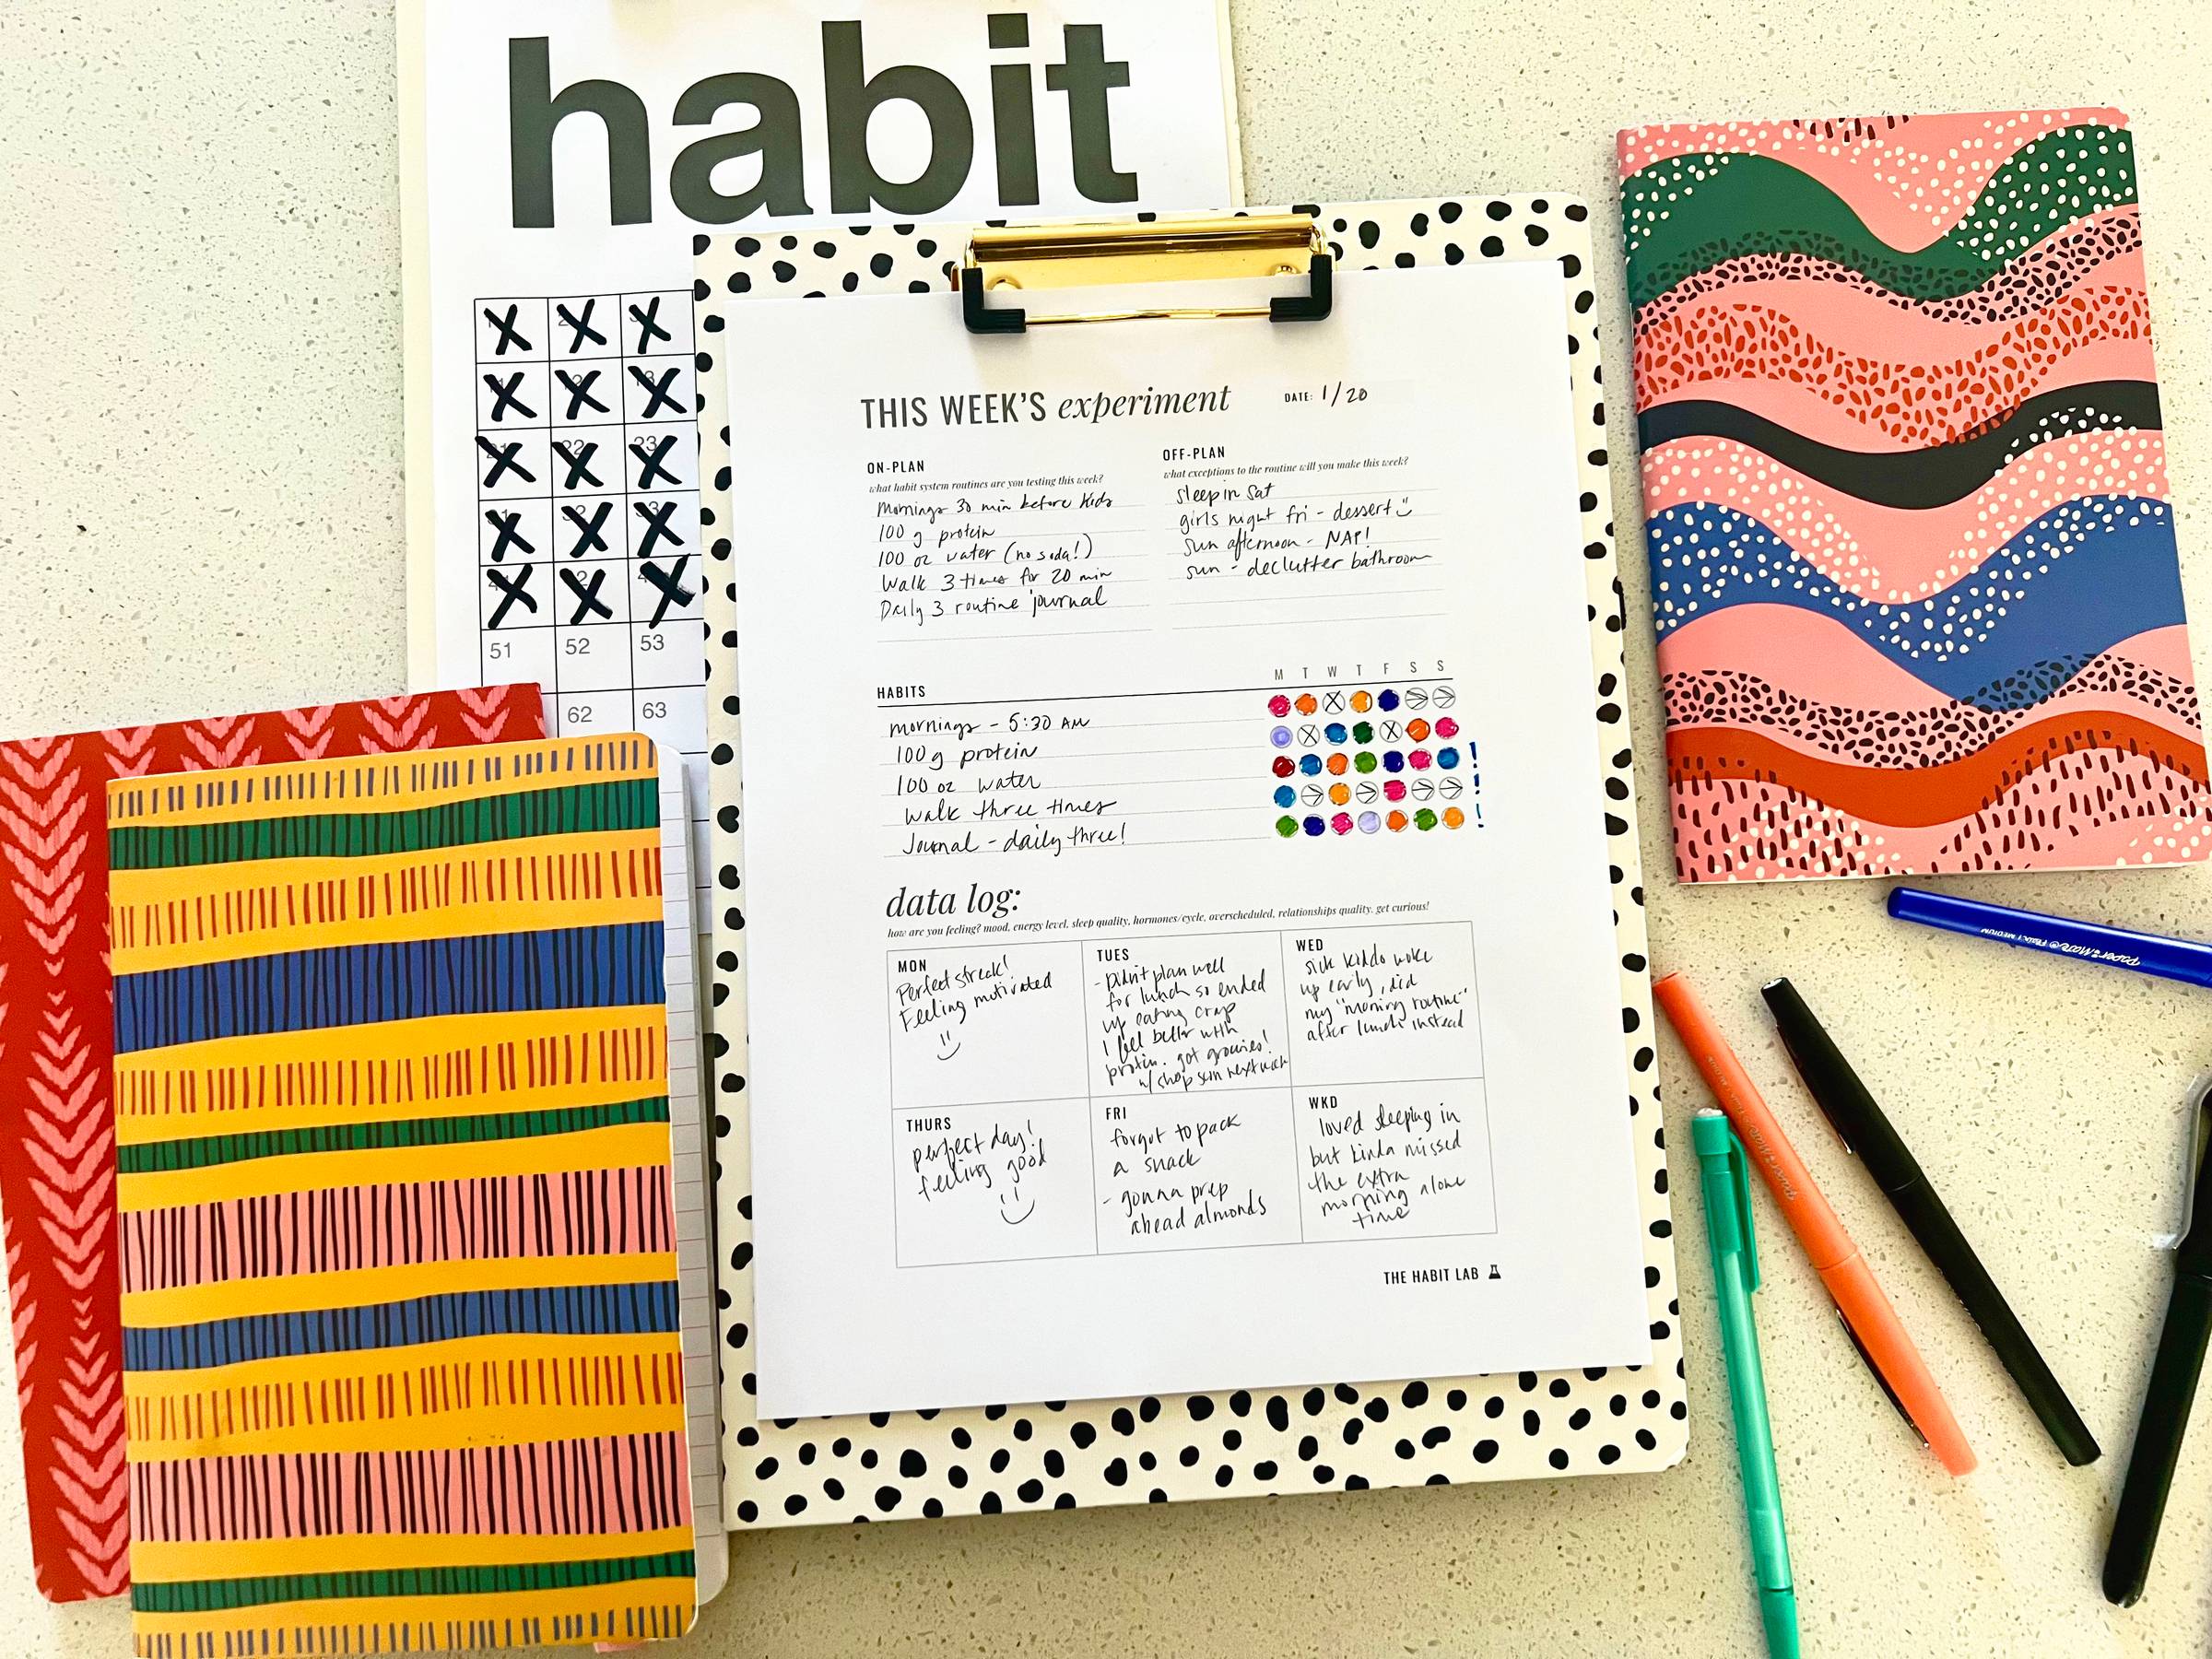 habit
23
51 52 53
62 63
THIS WEEK'S experiment
DATE: 1/20
ON-PLAN
what habit system routines are you testing this week?
Mornings 30 min before kids
100 g protein
100 oz water (no soda!)
Walk 3 times for 20 min
Daily 3 routine journal
OFF-PLAN
what exceptions to the routine will you make this week?
sleep in Sat
girls night fri - dessert
sun afternoon - NAP!
sun - declutter bathroom
HABITS
M T W T F S S
mornings - 5:30 AM
100 g protein
100 oz water
walk three times
Journal - daily three!
data log:
how are you feeling? mood, energy level, sleep quality, hormones/cycle, overscheduled, relationships quality. get curious!
MON
Perfect streak!
Feeling motivated
TUES
- Didn't plan well
for lunch so ended
up eating crap
I feel better with
protein. got groceries!
w/ shop sun next week
WED
sick kiddo woke
up early, did
my "morning routine"
after lunch instead
THURS
perfect day!
feeling good
FRI
forgot to pack
a snack
- gonna prep
ahead almonds
WKD
loved sleeping in
but kinda missed
the extra
morning alone
time
THE HABIT LAB
Paper Mate